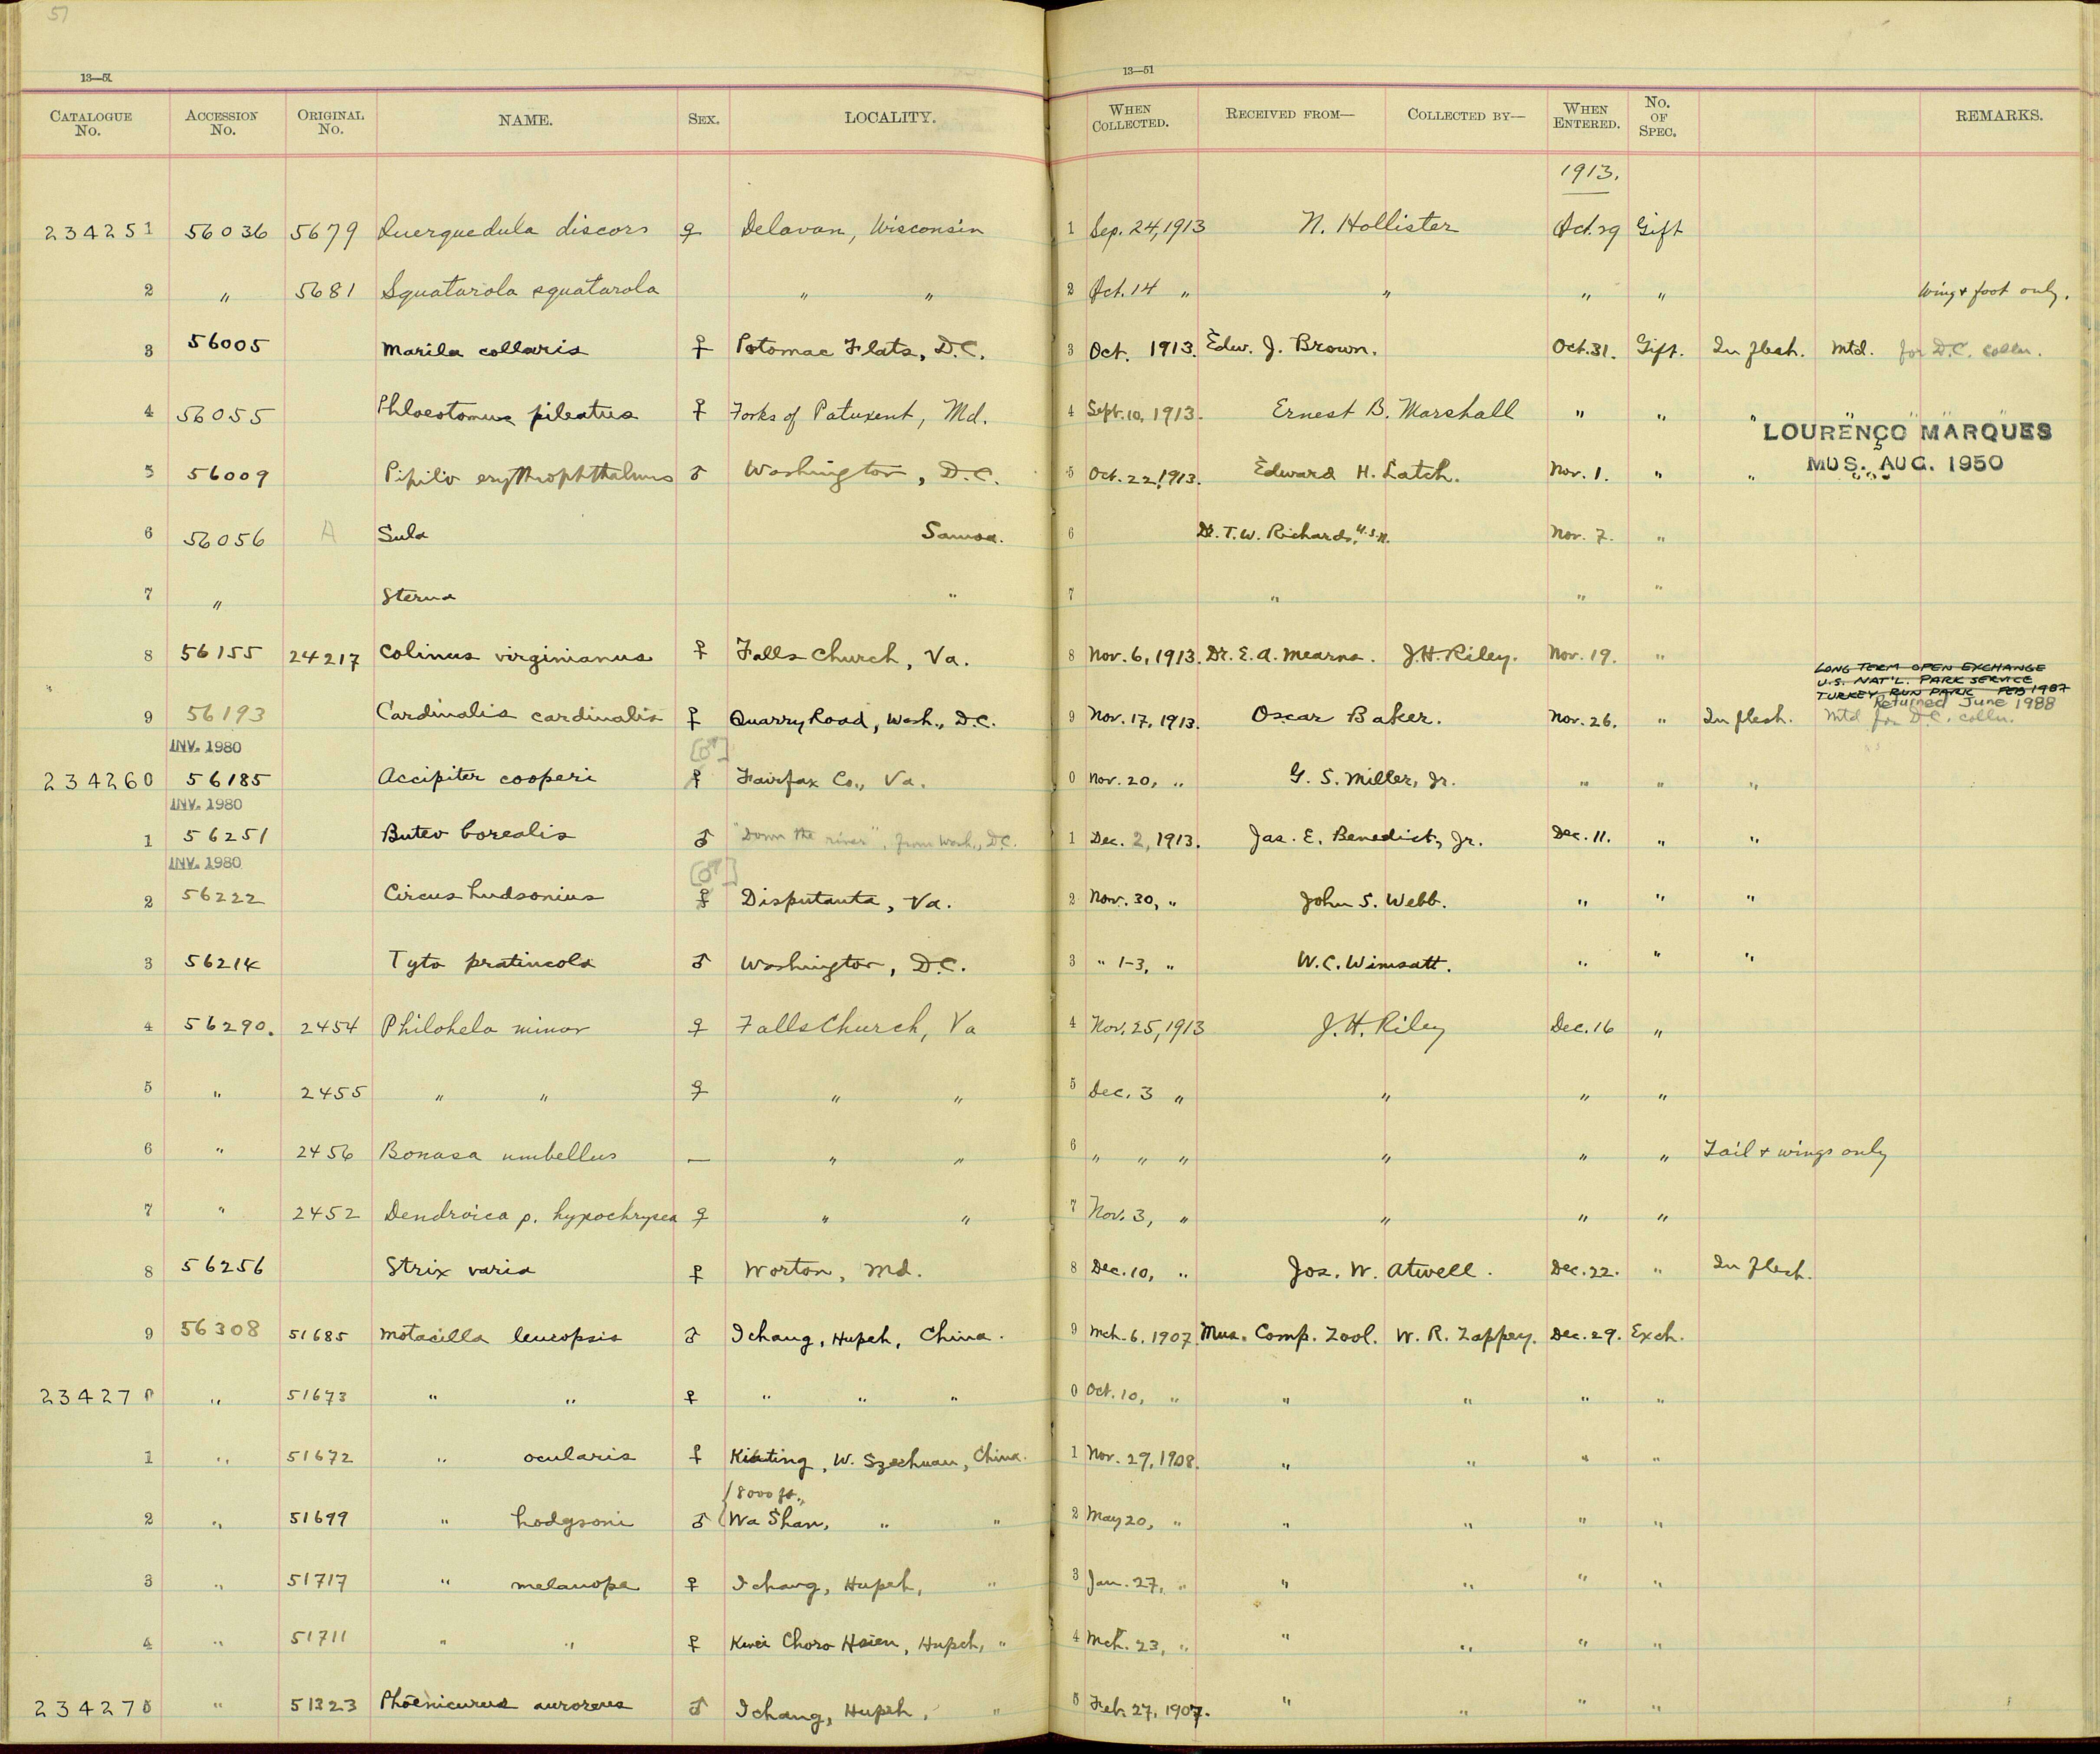 51
13—51
13—51
CATALOGUE No. ACCESSION No. ORIGINAL No. NAME. SEX. LOCALITY. WHEN COLLECTED. RECEIVED FROM— COLLECTED BY— WHEN ENTERED. No. OF SPEC. REMARKS.
1913.
234251 56036 5679 Querquedula discors ♀ Delavan, Wisconsin 1 Sep. 24, 1913 N. Hollister Oct. 29 Gift
2 " 5681 Squatarola squatarola " " 2 Oct. 14 " " " " Wing & foot only.
3 56005 Marila collaris ♀ Potomac Flats, D.C. 3 Oct. 1913. Edw. J. Brown. Oct. 31. Gift. In flesh. Mtd. for D.C. colln.
4 56055 Phloeotomus pileatus ♀ Forks of Patuxent, Md. 4 Sept. 10, 1913. Ernest B. Marshall " " " " " "
LOURENÇO MARQUES
MUS. AUG. 1950
5 56009 Pipilo erythrophthalmus ♂ Washington, D.C. 5 Oct. 22, 1913. Edward H. Latch. Nov. 1. " "
6 56056 A Sula Samoa. 6 Dr. T. W. Richards, U.S.N. Nov. 7. "
7 " Sterna " 7 " " "
8 56155 24217 Colinus virginianus ♀ Falls Church, Va. 8 Nov. 6, 1913. Dr. E. A. Mearns. J. H. Riley. Nov. 19. "
LONG TERM OPEN EXCHANGE
U.S. NAT'L. PARK SERVICE
TURKEY RUN PARK FEB 1987
Returned June 1988
9 56193 Cardinalis cardinalis ♀ Quarry Road, Wash., D.C. 9 Nov. 17, 1913. Oscar Baker. Nov. 26. " In flesh. Mtd for D.C. colln.
INV. 1980 [♂]
234260 56185 Accipiter cooperi ♀ Fairfax Co., Va. 0 Nov. 20, " G. S. Miller, Jr. " " "
INV. 1980
1 56251 Buteo borealis ♂ "Down the river", from Wash., D.C. 1 Dec. 2, 1913. Jas. E. Benedict, Jr. Dec. 11. " "
INV. 1980 [♂]
2 56222 Circus hudsonius ♀ Disputanta, Va. 2 Nov. 30, " John S. Webb. " " "
3 56214 Tyto pratincola ♂ Washington, D.C. 3 " 1-3, " W. C. Wimsatt. " " "
4 56290. 2454 Philohela minor ♀ Falls Church, Va 4 Nov. 25, 1913 J. H. Riley Dec. 16 "
5 " 2455 " " ♀ " " 5 Dec. 3 " " " "
6 " 2456 Bonasa umbellus — " " 6 " " " " " " Tail & wings only
7 " 2452 Dendroica p. hypochrysea ♀ " " 7 Nov. 3, " " " "
8 56256 Strix varia ♀ Worton, Md. 8 Dec. 10, " Jos. W. Atwell. Dec. 22. " In flesh.
9 56308 51685 Motacilla leucopsis ♂ Ichang, Hupeh, China. 9 Mch. 6, 1907. Mus. Comp. Zool. W. R. Zappey. Dec. 29. Exch.
234270 " 51673 " " ♀ " " " 0 Oct. 10, " " " " "
1 " 51672 " ocularis ♀ Kiating, W. Szechuan, China. 1 Nov. 29, 1908. " " " "
8000 ft.,
2 " 51699 " hodgsoni ♂ Wa Shan, " " 2 May 20, " " " " "
3 " 51717 " melanope ♀ Ichang, Hupeh, " 3 Jan. 27, " " " " "
4 " 51711 " " ♀ Kwei Choro Hsien, Hupeh, " 4 Mch. 23, " " " " "
234275 " 51323 Phoenicurus auroreus ♂ Ichang, Hupeh, " 5 Feb. 27, 1907. " " " "